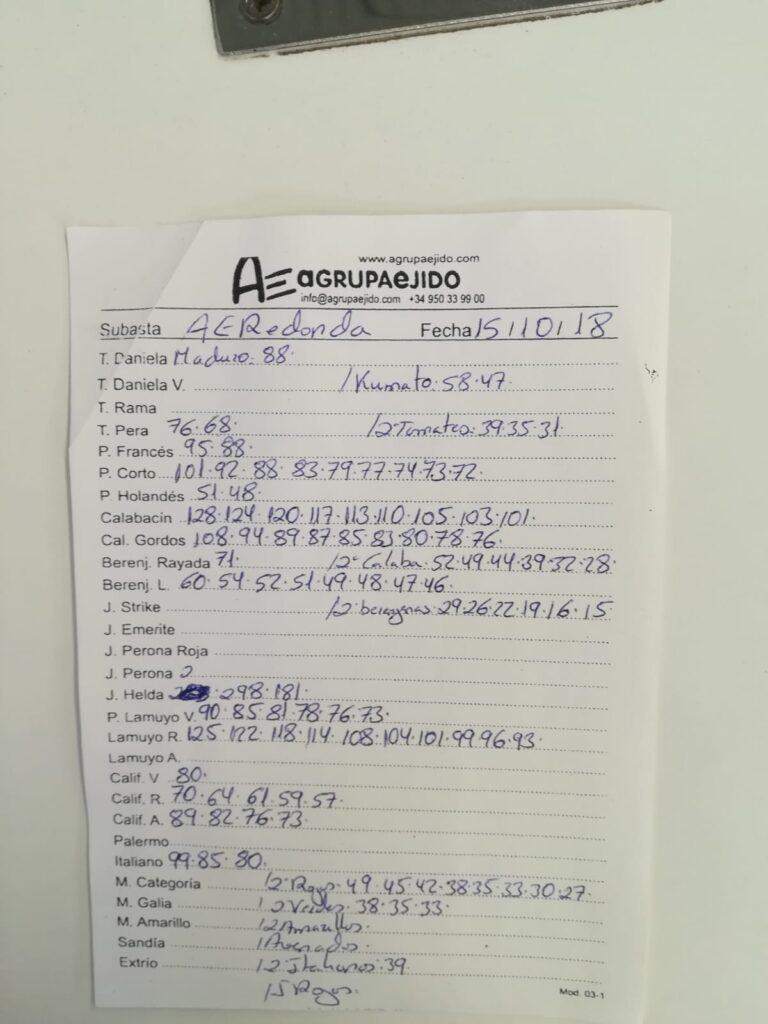 www.agrupaejido.com
AE AGRUPAEJIDO
info@agrupaejido.com +34 950 33 99 00
Subasta AE Redonda Fecha 15/10/18
T. Daniela Maduro. 88.
T. Daniela V. /Kumato. 58.47.
T. Rama
T. Pera 76.68. /2ª Tomates. 39.35.31.
P. Francés 95.88.
P. Corto 101.92.88.83.79.77.74.73.72.
P Holandés 51.48.
Calabacín 128.124.120.117.113.110.105.103.101.
Cal. Gordos 108.94.89.87.85.83.80.78.76.
Berenj. Rayada 71. /2ª Calaba. 52.49.44.39.32.28.
Berenj. L. 60.54.52.51.49.48.47.46.
J. Strike /2ª berengenas. 29.26.22.19.16.15
J. Emerite
J. Perona Roja
J. Perona 2
J. Helda 298.181.
P. Lamuyo V. 90.85.81.78.76.73.
Lamuyo R. 125.122.118.114.108.104.101.99.96.93.
Lamuyo A.
Calif. V 80.
Calif. R. 70.64.61.59.57.
Calif. A. 89.82.76.73.
Palermo
Italiano 99.85.80.
M. Categoria /2ª Rojos. 49.45.42.38.35.33.30.27.
M. Galia /2 Verdes. 38.35.33.
M. Amarillo /2 Amarillos.
Sandía
Extrio /2 Italianos. 39.
/5 Rojos.
Mod. 03-1